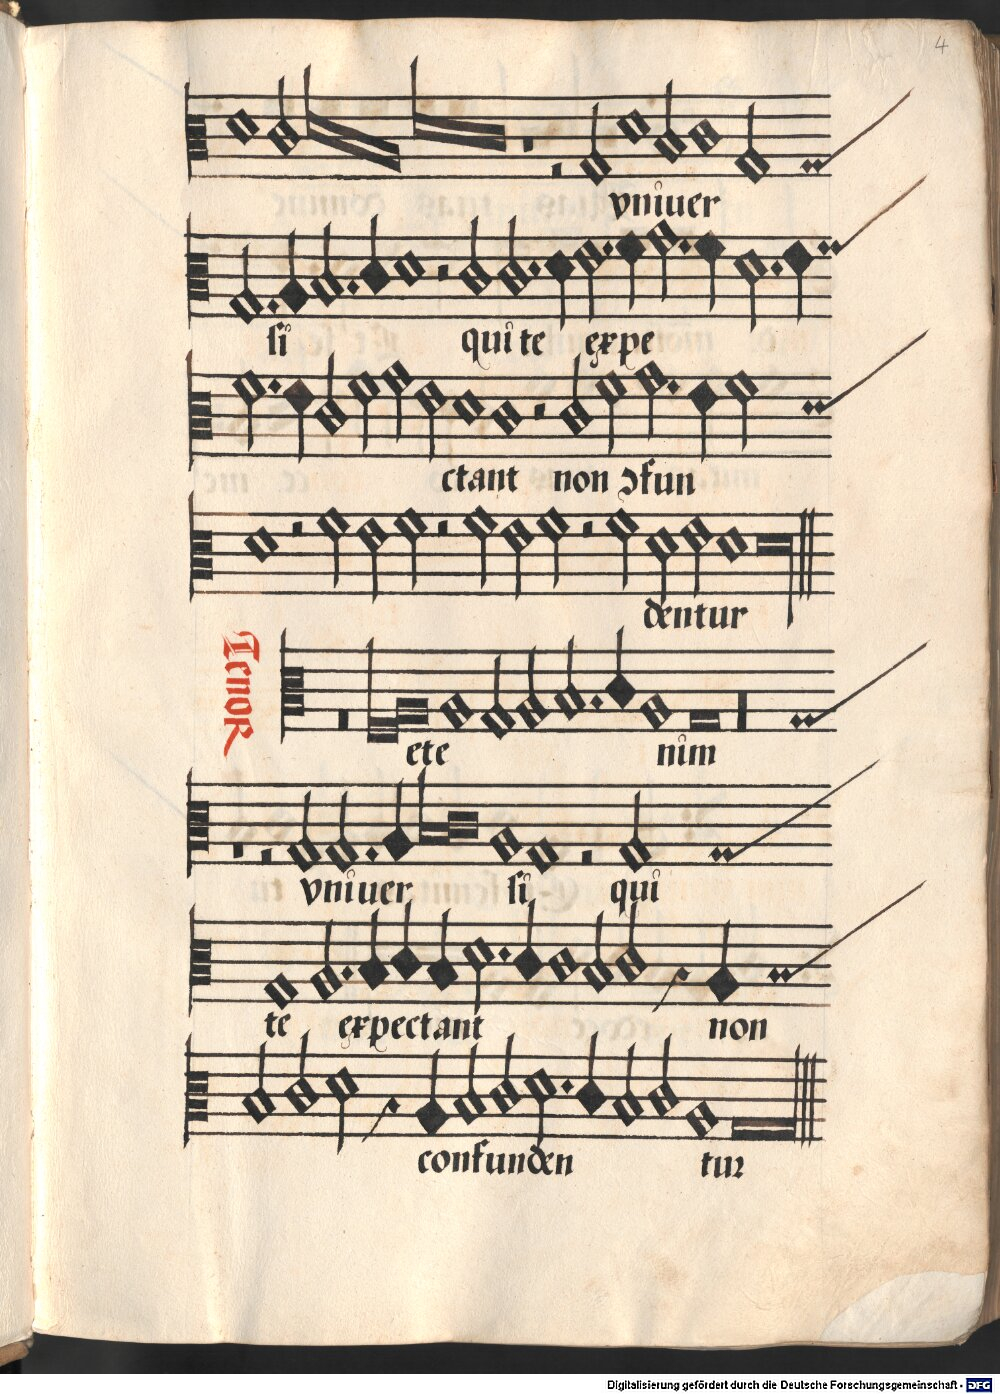 4
vniuer
si qui te expe
ctant non ꝯfun
dentur
Tenor
ete nim
vniuer si qui
te expectant non
confunden tur
Digitalisierung gefördert durch die Deutsche Forschungsgemeinschaft - DFG